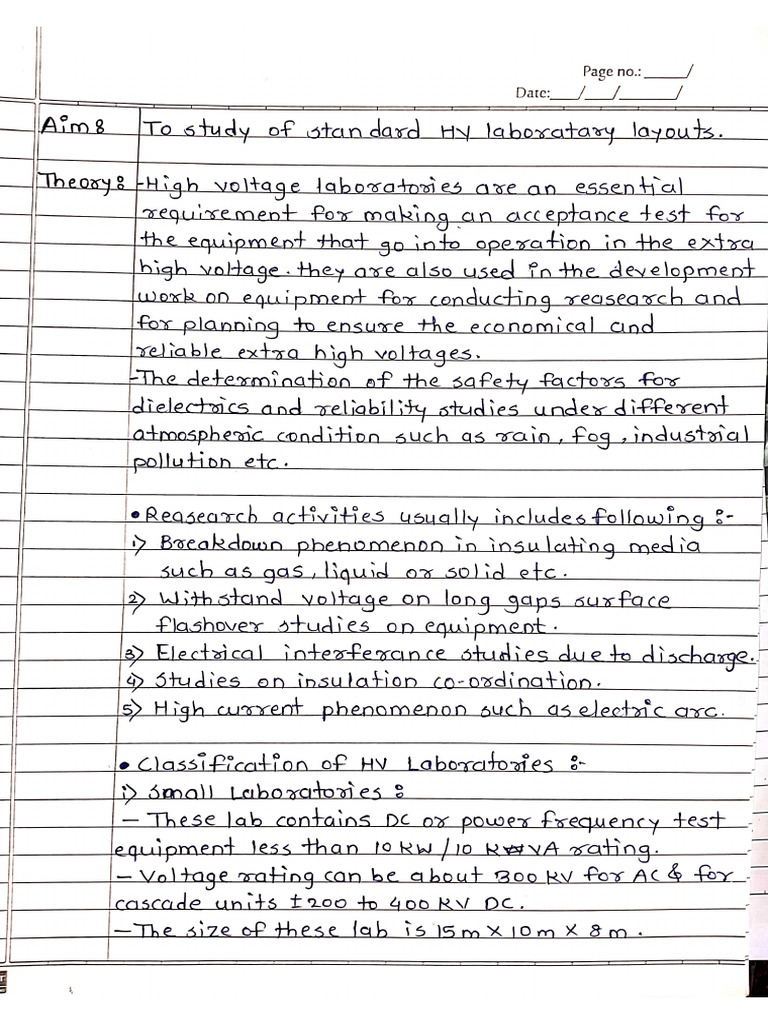 Page no.: _____/
Date:___/___/______/
Aim : To study of standard HV laboratary layouts.
Theory : -High voltage laboratories are an essential
requirement for making an acceptance test for
the equipment that go into operation in the extra
high voltage. they are also used in the development
work on equipment for conducting reasearch and
for planning to ensure the economical and
reliable extra high voltages.
-The determination of the safety factors for
dielectrics and reliability studies under different
atmospheric condition such as rain, fog, industrial
pollution etc.
• Reasearch activities usually includes following :-
1) Breakdown phenomenon in insulating media
such as gas, liquid or solid etc.
2) Withstand voltage on long gaps surface
flashover studies on equipment.
3) Electrical interferance studies due to discharge.
4) Studies on insulation co-ordination.
5) High current phenomenon such as electric arc.
• Classification of HV Laboratories :-
1) Small Laboratories :
- These lab contains DC or power frequency test
equipment less than 10 kW/10 kVA rating.
- Voltage rating can be about 300 KV for AC & for
cascade units ±200 to 400 KV DC.
- The size of these lab is 15m X 10m X 8m.